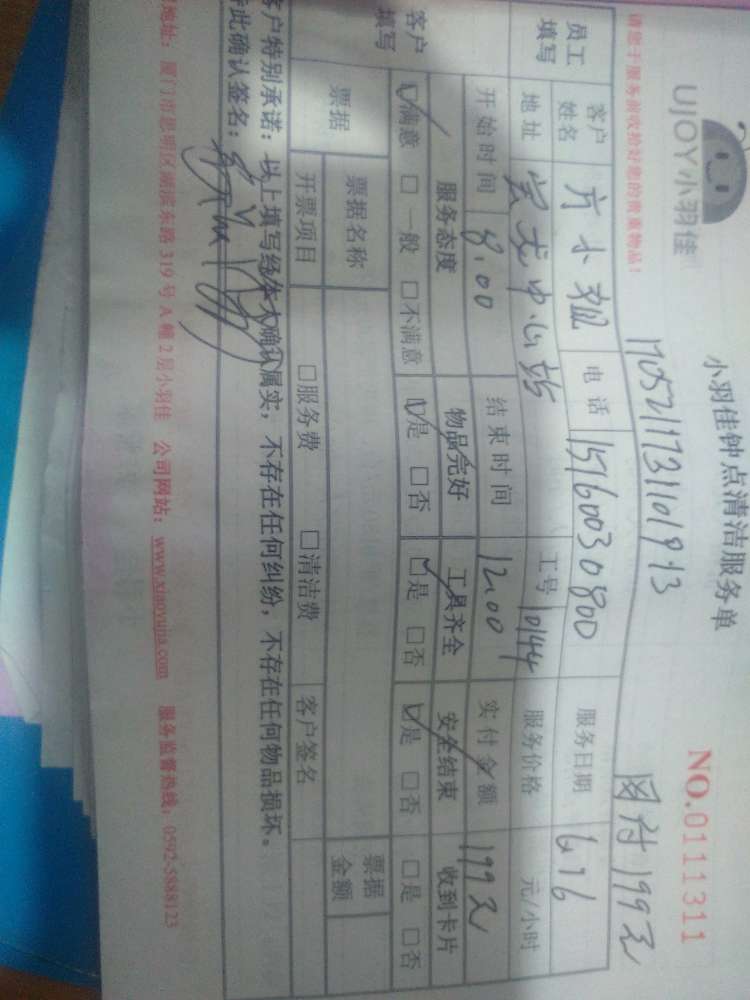 UJOY小羽佳
小羽佳钟点清洁服务单
NO.0111311
请您于服务前收拾好您的贵重物品！
网付199元
员工填写
客户姓名 电话 15160030800 服务日期 6.16
地址 中心 工号 10144 服务价格 元/小时
开始时间 8:00 结束时间 12:00 实付金额 199元
客户填写
服务态度 物品完好 工具齐全 安全结束 收到卡片
☑满意 □一般 □不满意 ☑是 □否 ☑是 □否 ☑是 □否 □是 □否
票据 票据名称 票据金额
开票项目 □服务费 □清洁费 客户签名
客户特别承诺：以上填写经本人确认属实，不存在任何纠纷，不存在任何物品损坏。
此确认签名：
地址：厦门市思明区湖滨东路319号A幢2层小羽佳 公司网站：www.xiaoyujia.com 服务监督热线：0592-5888123